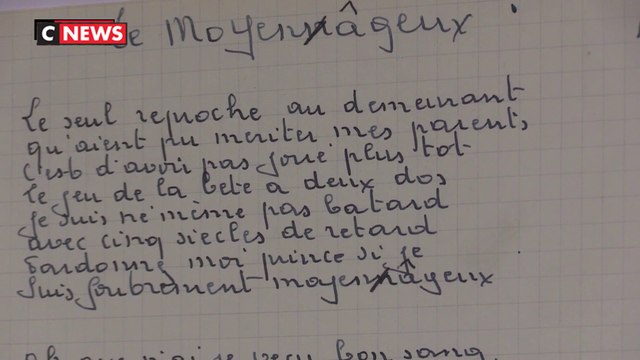 CNEWS
Le Moyennâgeux
Le seul reproche au demeurant
qu'aient pu mériter mes parents,
c'est d'avoir pas joué plus tôt
le jeu de la bête à deux dos
Je suis né même pas batard
avec cinq siècles de retard
Pardonnez moi prince si je
Suis foutrement moyennâgeux